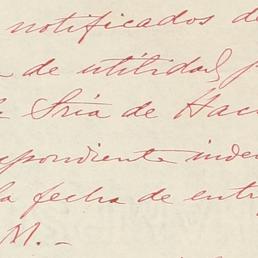 notificados de
de utilidad p
Sría de Hac
spondiente indem
la fecha de entr
M.-